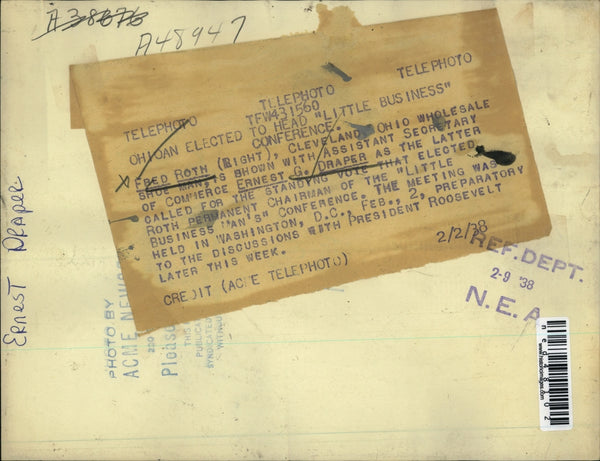 A38676
A48947
TELEPHOTO TELEPHOTO TELEPHOTO
TFW431560
OHIOAN ELECTED TO HEAD "LITTLE BUSINESS"
CONFERENCE.
FRED ROTH (RIGHT), CLEVELAND, OHIO WHOLESALE
SHOE MAN, IS SHOWN WITH ASSISTANT SECRETARY
OF COMMERCE ERNEST G. DRAPER AS THE LATTER
CALLED FOR THE STANDING VOTE THAT ELECTED
ROTH PERMANENT CHAIRMAN OF THE "LITTLE
BUSINESS MAN'S" CONFERENCE. THE MEETING WAS
HELD IN WASHINGTON, D.C., FEB., 2, PREPARATORY
TO THE DISCUSSIONS WITH PRESIDENT ROOSEVELT
LATER THIS WEEK.
2/2/38
CREDIT (ACME TELEPHOTO)
REF. DEPT.
2-9 '38
N.E.A.
Ernest Draper
PHOTO BY
ACME NEWS
220
Please
THIS
PUBLICA
SYNDICATED
WITHOU
ned48602
www.historicimages.com